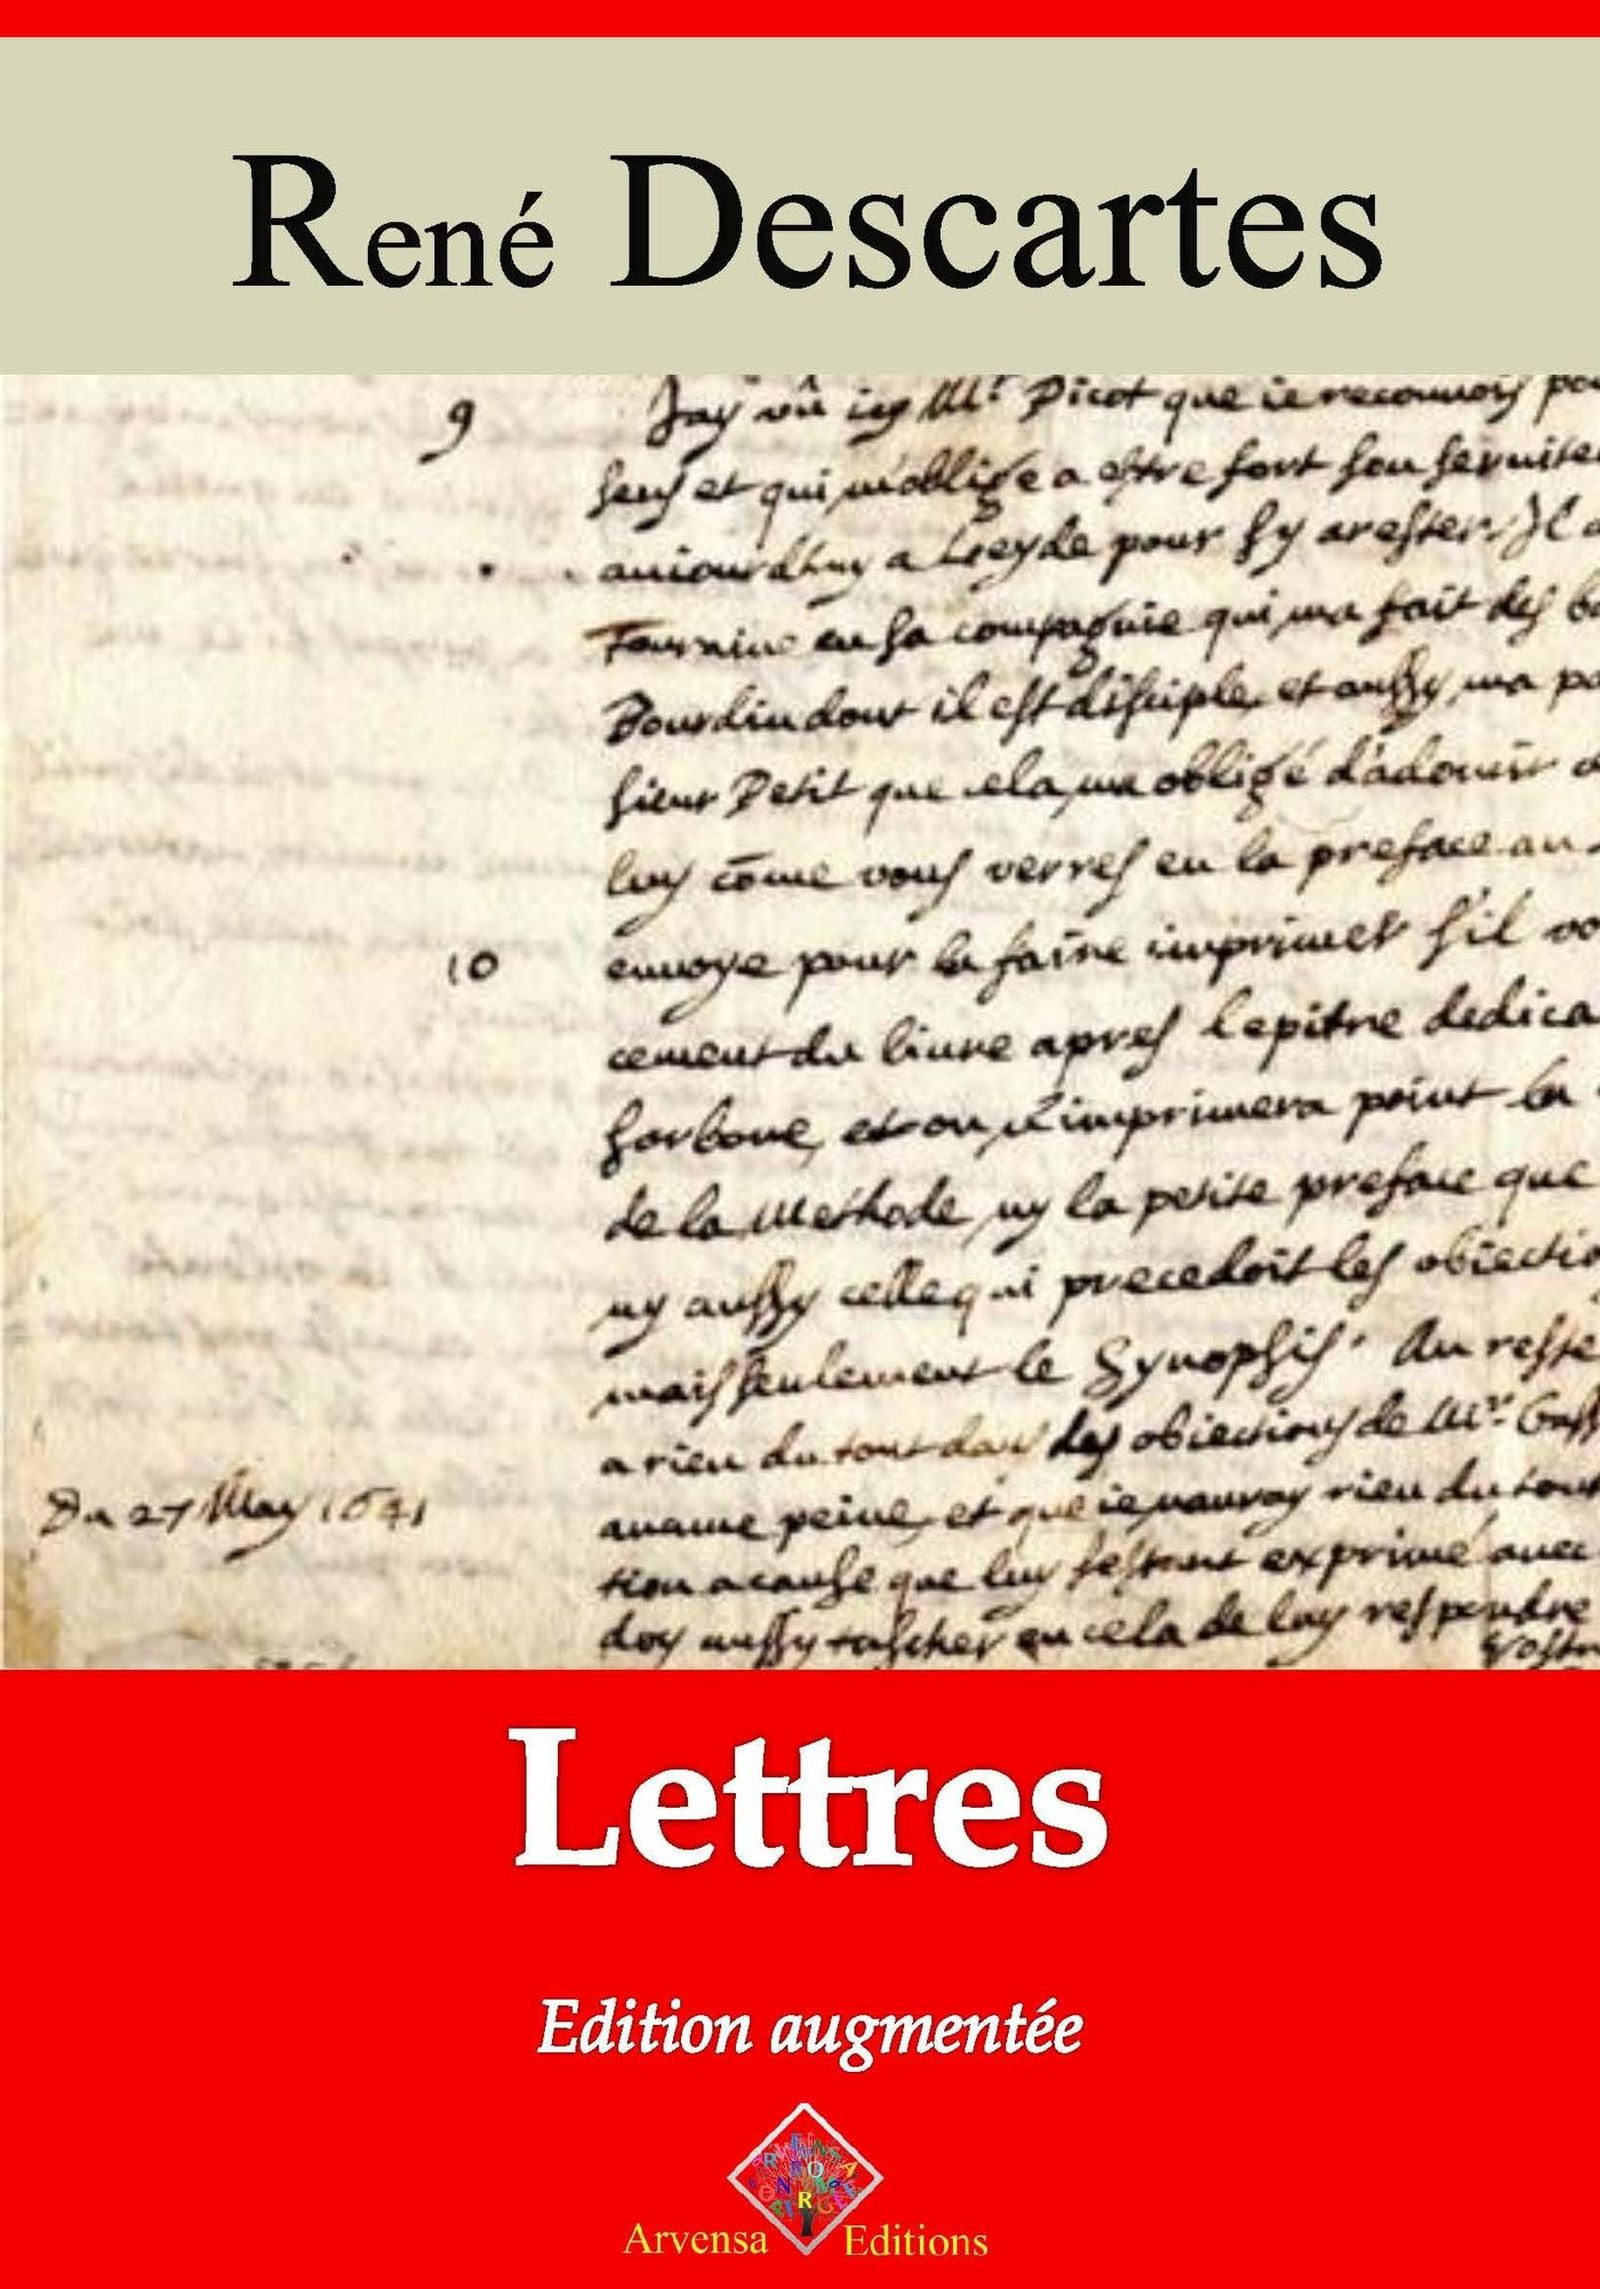 René Descartes
9
Jay vû icy Mr. Picot que ie reconnois po
sens et qui m'oblige a estre fort son seruite
auiourdhuy a Leyde pour sy arester. Il a
Touraine en sa compagnie qui ma fait des ba
Bourdin dont il est disciple, et aussy ma pa
sieur Petit que cela ma obligé d'adoucir
luy cõme vous verres en la preface au
10
enuoye pour la faire imprimer s'il vo
cement du liure apres l'epitre dedica
sorbone, et on n'imprimera point la
de la Methode ny la petite preface que
ny aussy celle qui precedoit les obiectio
mais seulement le Synopsis. Au reste
a rien du tout dans les obiections de Mr. Gass
aucune peine, et que ie nauray rien du tout
Du 27 May 1641
tion a cause que luy sestant exprimé auec
doy aussy tascher en cela de luy respondre
Vostre
Lettres
Edition augmentée
Arvensa Editions